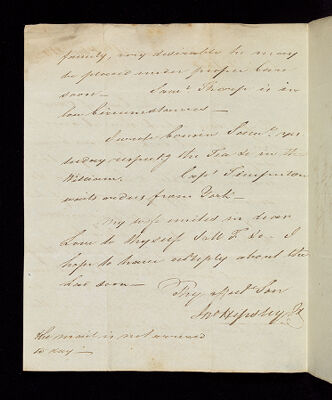 family, very desirable he may
be placed under proper care
soon — Saml. Thorp is in
low Circumstances —
I wrote Cousin
today respectg. the Tea &c in the
William. Capt.
wants orders from York —
My wife unites in dear
Love to thyself &c. I
hope to have a reply about the
soon —
Thy affect. Son
Jno. Hipsley Jr
The mail is not arrived
to day —